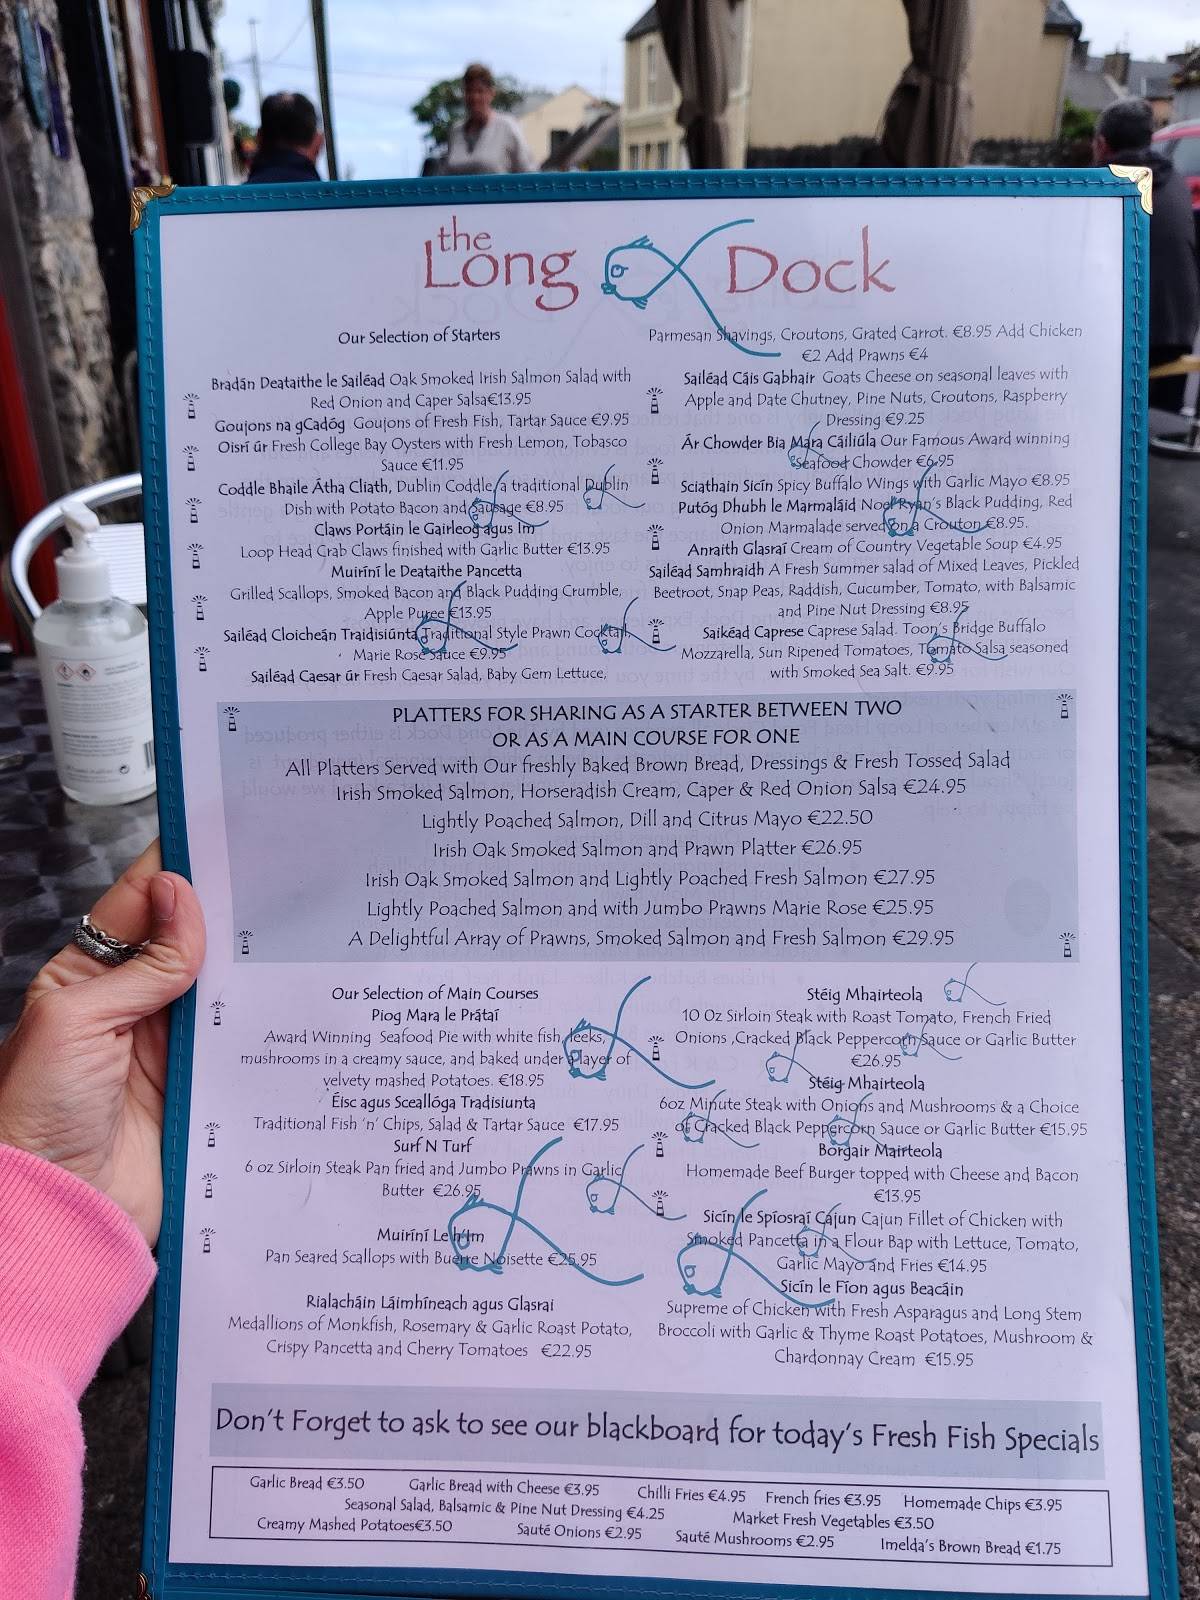 the
Long Dock
Our Selection of Starters
Bradán Deataithe le Sailéad Oak Smoked Irish Salmon Salad with
Red Onion and Caper Salsa€13.95
Goujons na gCadóg Goujons of Fresh Fish, Tartar Sauce €9.95
Oisrí úr Fresh College Bay Oysters with Fresh Lemon, Tobasco
Sauce €11.95
Coddle Bhaile Átha Cliath, Dublin Coddle, a traditional Dublin
Dish with Potato Bacon and Sausage €8.95
Claws Portáin le Gairleog agus Im
Loop Head Crab Claws finished with Garlic Butter €13.95
Muiríní le Deataithe Pancetta
Grilled Scallops, Smoked Bacon and Black Pudding Crumble,
Apple Puree €13.95
Sailéad Cloicheán Traidisiúnta Traditional Style Prawn Cocktail,
Marie Rose Sauce €9.95
Sailéad Caesar úr Fresh Caesar Salad, Baby Gem Lettuce,
Parmesan Shavings, Croutons, Grated Carrot. €8.95 Add Chicken
€2 Add Prawns €4
Sailéad Cáis Gabhair Goats Cheese on seasonal leaves with
Apple and Date Chutney, Pine Nuts, Croutons, Raspberry
Dressing €9.25
Ár Chowder Bia Mara Cáiliúla Our Famous Award winning
Seafood Chowder €6.95
Sciathain Sicín Spicy Buffalo Wings with Garlic Mayo €8.95
Putóg Dhubh le Marmaláid Noel Ryan's Black Pudding, Red
Onion Marmalade served on a Crouton €8.95.
Anraith Glasraí Cream of Country Vegetable Soup €4.95
Sailéad Samhraidh A Fresh Summer salad of Mixed Leaves, Pickled
Beetroot, Snap Peas, Raddish, Cucumber, Tomato, with Balsamic
and Pine Nut Dressing €8.95
Saikéad Caprese Caprese Salad. Toon's Bridge Buffalo
Mozzarella, Sun Ripened Tomatoes, Tomato Salsa seasoned
with Smoked Sea Salt. €9.95
PLATTERS FOR SHARING AS A STARTER BETWEEN TWO
OR AS A MAIN COURSE FOR ONE
All Platters Served with Our freshly Baked Brown Bread, Dressings & Fresh Tossed Salad
Irish Smoked Salmon, Horseradish Cream, Caper & Red Onion Salsa €24.95
Lightly Poached Salmon, Dill and Citrus Mayo €22.50
Irish Oak Smoked Salmon and Prawn Platter €26.95
Irish Oak Smoked Salmon and Lightly Poached Fresh Salmon €27.95
Lightly Poached Salmon and with Jumbo Prawns Marie Rose €25.95
A Delightful Array of Prawns, Smoked Salmon and Fresh Salmon €29.95
Our Selection of Main Courses
Piog Mara le Prátaí
Award Winning Seafood Pie with white fish, leeks,
mushrooms in a creamy sauce, and baked under a layer of
velvety mashed Potatoes. €18.95
Éisc agus Sceallóga Tradisiunta
Traditional Fish 'n' Chips, Salad & Tartar Sauce €17.95
Surf N Turf
6 oz Sirloin Steak Pan fried and Jumbo Prawns in Garlic
Butter €26.95
Muiríní Le h'Im
Pan Seared Scallops with Buerre Noisette €25.95
Rialacháin Láimhíneach agus Glasrai
Medallions of Monkfish, Rosemary & Garlic Roast Potato,
Crispy Pancetta and Cherry Tomatoes €22.95
Stéig Mhairteola
10 Oz Sirloin Steak with Roast Tomato, French Fried
Onions ,Cracked Black Peppercorn Sauce or Garlic Butter
€26.95
Stéig Mhairteola
6oz Minute Steak with Onions and Mushrooms & a Choice
of Cracked Black Peppercorn Sauce or Garlic Butter €15.95
Borgair Mairteola
Homemade Beef Burger topped with Cheese and Bacon
€13.95
Sicín le Spíosraí Cajun Cajun Fillet of Chicken with
Smoked Pancetta in a Flour Bap with Lettuce, Tomato,
Garlic Mayo and Fries €14.95
Sicín le Fíon agus Beacáin
Supreme of Chicken with Fresh Asparagus and Long Stem
Broccoli with Garlic & Thyme Roast Potatoes, Mushroom &
Chardonnay Cream €15.95
Don't Forget to ask to see our blackboard for today's Fresh Fish Specials
Garlic Bread €3.50 Garlic Bread with Cheese €3.95 Chilli Fries €4.95 French fries €3.95 Homemade Chips €3.95
Seasonal Salad, Balsamic & Pine Nut Dressing €4.25 Market Fresh Vegetables €3.50
Creamy Mashed Potatoes€3.50 Sauté Onions €2.95 Sauté Mushrooms €2.95 Imelda's Brown Bread €1.75